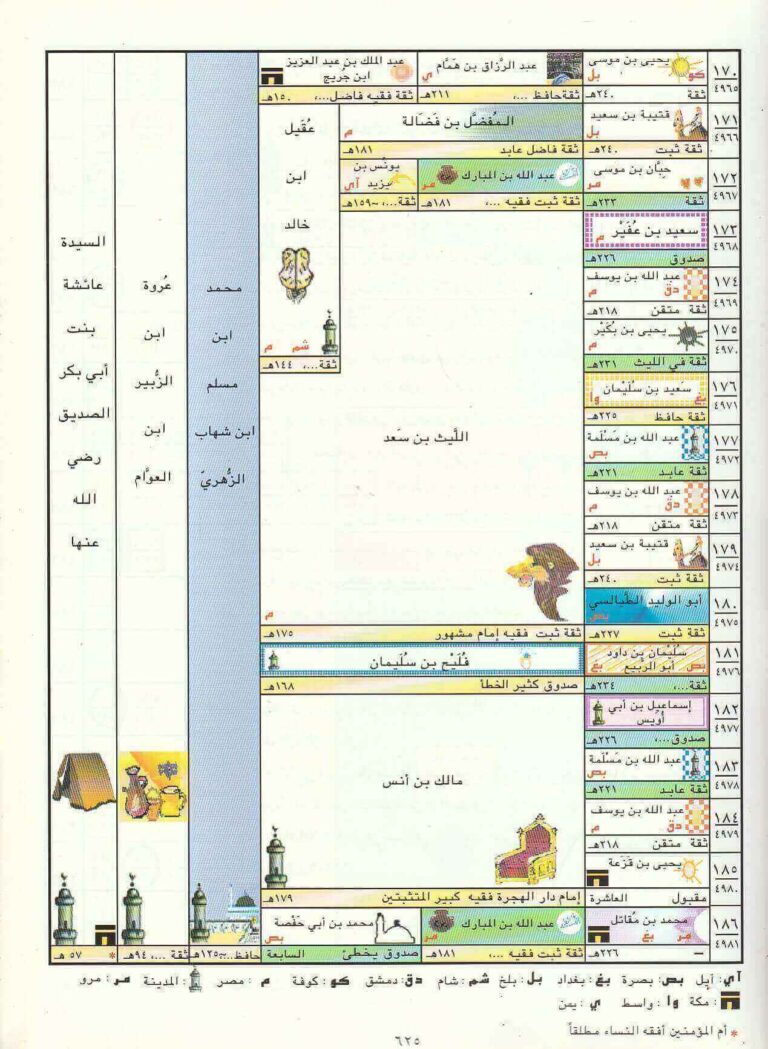 ١٧٠
٤٩٦٥
يحيى بن موسى
كو
بل
ثقة ٢٤٠هـ
عبد الرَّزاق بن هَمَّام
ي
ثقة حافظ ...، ٢١١هـ
عبد الملك بن عبد العزيز
ابن جُريج
ثقة فقيه فاضل...، ١٥٠هـ
١٧١
٤٩٦٦
قتيبة بن سعيد
بل
ثقة ثبت ٢٤٠هـ
المُفضَّل بن فَضَالة
م
ثقة فاضل عابد ١٨١هـ
عُقَيل
ابن
خالد
شم م
ثقة...، ١٤٤هـ
١٧٢
٤٩٦٧
حِبَّان بن موسى
مر
ثقة ٢٣٣هـ
عبد الله بن المبارك
مر
ثقة ثبت فقيه ...، ١٨١هـ
يونُس بن
يزيد آي
ثقة...، ~١٥٩هـ
١٧٣
٤٩٦٨
سعيد بن عُفَيْر
م
صدوق ٢٢٦هـ
١٧٤
٤٩٦٩
عبد الله بن يوسف
دق م
ثقة متقن ٢١٨هـ
١٧٥
٤٩٧٠
يحيى بن بُكَيْر
م
ثقة في الليث ٢٣١هـ
١٧٦
٤٩٧١
سَعيد بن سُلَيْمان
بغ وا
ثقة حافظ ٢٢٥هـ
١٧٧
٤٩٧٢
عبد الله بن مَسْلَمة
بص
ثقة عابد ٢٢١هـ
١٧٨
٤٩٧٣
عبد الله بن يوسف
دق م
ثقة متقن ٢١٨هـ
١٧٩
٤٩٧٤
قتيبة بن سعيد
بل
ثقة ثبت ٢٤٠هـ
١٨٠
٤٩٧٥
أبو الوليد الطَّيالسي
بص
ثقة ثبت ٢٢٧هـ
اللَّيث بن سَعد
م
ثقة ثبت فقيه إمام مشهور ١٧٥هـ
١٨١
٤٩٧٦
سُلَيْمان بن داود
بص أبو الرَّبيع بغ
ثقة...، ٢٣٤هـ
فُلَيْح بن سُلَيمان
صدوق كثير الخطأ ١٦٨هـ
١٨٢
٤٩٧٧
إسماعيل بن أبي
أُوَيْس
صدوق...، ٢٢٦هـ
١٨٣
٤٩٧٨
عبد الله بن مَسْلَمة
بص
ثقة عابد ٢٢١هـ
١٨٤
٤٩٧٩
عبد الله بن يوسف
دق م
ثقة متقن ٢١٨هـ
١٨٥
٤٩٨٠
يحيى بن قَزَعة
مقبول العاشرة
مالك بن أنس
إمام دار الهجرة فقيه كبير المتثبتين ١٧٩هـ
١٨٦
٤٩٨١
محمد بن مُقاتل
مر بغ
– ٢٢٦هـ
عبد الله بن المبارك
مر
ثقة ثبت فقيه ...، ١٨١هـ
محمد بن أبي حَفْصة
بص
صدوق يخطئ السابعة
محمد
ابن
مسلم
ابن شهاب
الزُّهريّ
حافظ...~١٢٥هـ
عُروة
ابن
الزُّبير
ابن
العوَّام
ثقة...، ٩٤هـ
السيدة
عائشة
بنت
أبي بكر
الصديق
رضي
الله
عنها
* ٥٧ هـ
آي: أيل بص: بصرة بغ: بغداد بل: بلخ شم: شام دق: دمشق كو: كوفة م : مصر : المدينة مر: مرو
: مكة وا : واسط ي : يمن
* أم المؤمنين أفقه النساء مطلقاً
٦٢٥